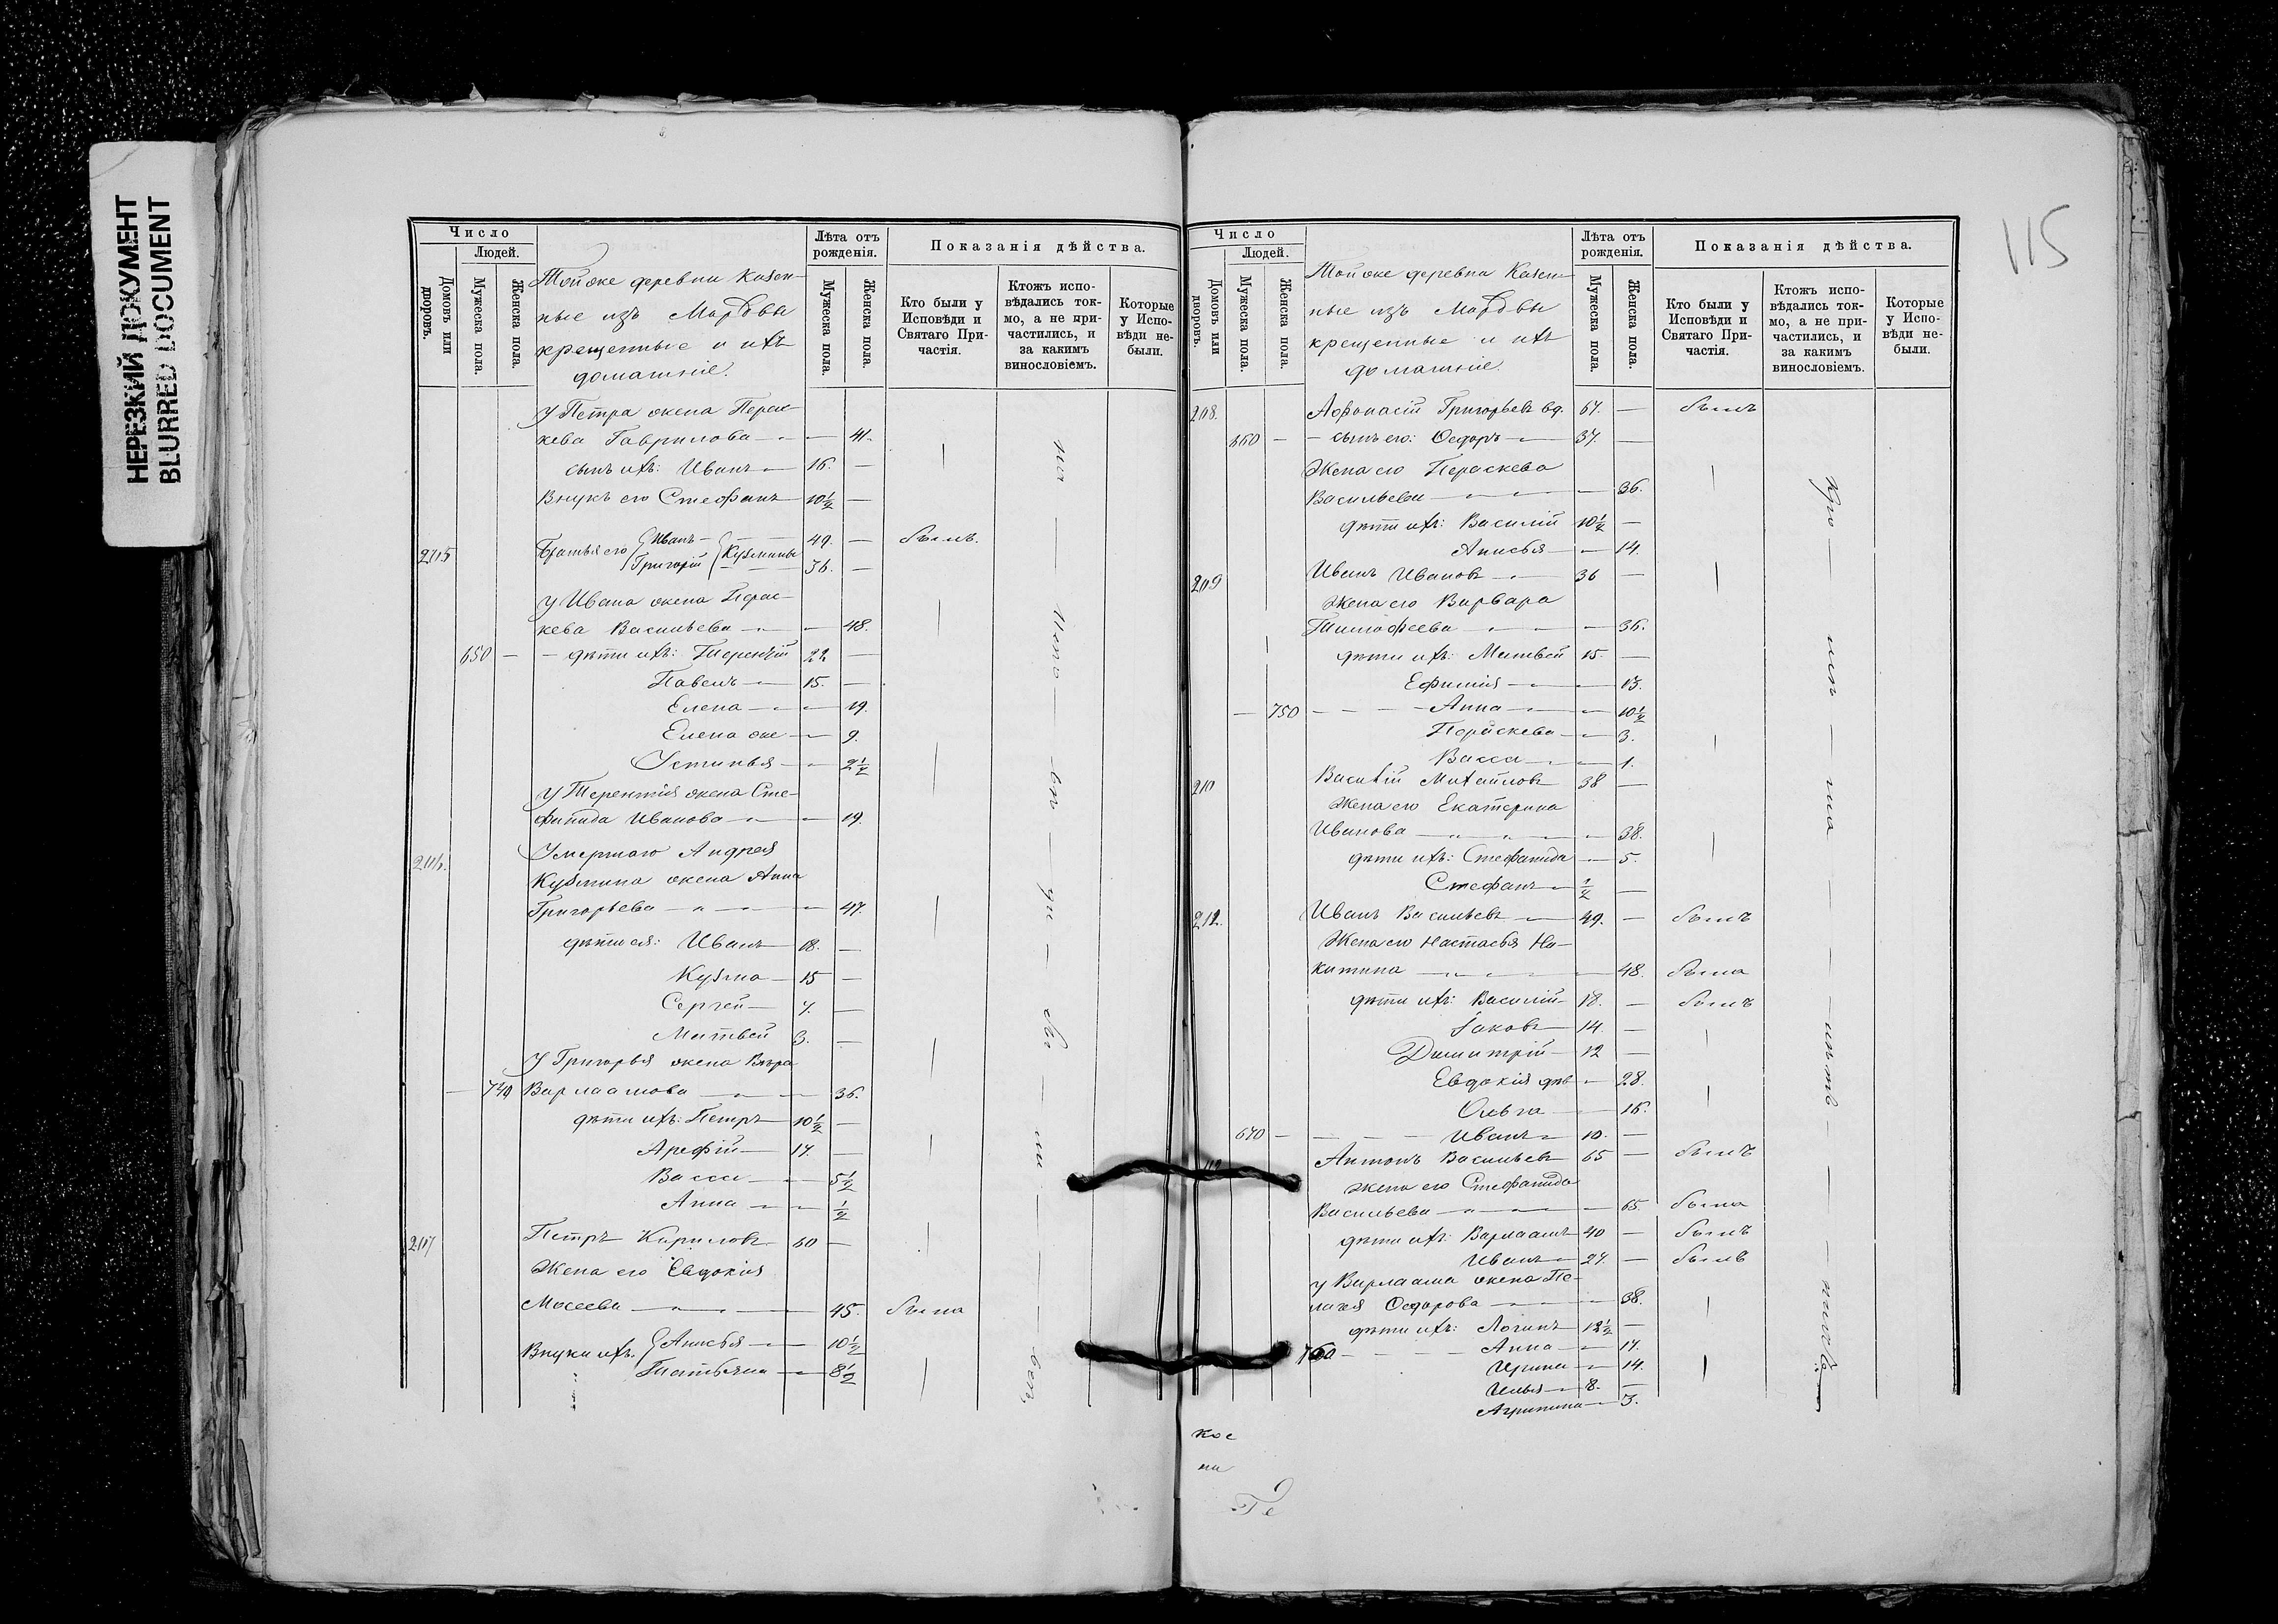 НЕРЕЗКИЙ ДОКУМЕНТ
BLURRED DOCUMENT
Число
Людей.
Домовъ или дворовъ.
Мужеска пола.
Женска пола.
Тойже деревни Казен-
ные изъ Мордвы
крещенные и ихъ
домашніе.
Лѣта отъ рожденія.
Мужеска пола.
Женска пола.
Показанія дѣйства.
Кто были у Исповѣди и Святаго Причастія.
Ктожъ исповѣдались токмо, а не причастились, и за какимъ винословіемъ.
Которые у Исповѣди небыли.
У Петра жена Перас-
кева Гаврилова 41.
сынъ ихъ: Иванъ 16. —
Внукъ его Стефанъ 10½ —
205 Братья его Иванъ 49. — былъ.
Григорій Кузмины 36. —
У Ивана жена Перас-
кева Васильева — 48.
650 — дѣти ихъ: Терентій 22 —
Павелъ 15. —
Елена — 19.
Елена же — 9.
Устинья — 2½
У Терентія жена Сте-
фанида Иванова — 19.
206. Умершаго Андрея
Кузмина жена Анна
Григорьева — 47.
дѣти ея: Иванъ 18. —
Кузма 15 —
Сергей 7. —
Матвей 3. —
У Григорья жена Вѣра
— 740 Варлаамова — 36.
дѣти ихъ: Петръ 10½ —
Арефій 17. —
Васса — 5½
Анна — ½
207 Петръ Кириловъ 60 —
Жена его Евдокія
Мосеева — 45. была
Внуки ихъ. Анисья — 10½
Татьяна — 8½
115
Число
Людей.
Домовъ или дворовъ.
Мужеска пола.
Женска пола.
Тойже деревни Казен-
ные изъ Мордвы
крещенные и ихъ
домашніе.
Лѣта отъ рожденія.
Мужеска пола.
Женска пола.
Показанія дѣйства.
Кто были у Исповѣди и Святаго Причастія.
Ктожъ исповѣдались токмо, а не причастились, и за какимъ винословіемъ.
Которые у Исповѣди небыли.
208. Афонасій Григорьевъ вд. 67. — былъ
660 — сынъ его: Ѳедоръ 37. —
Жена его Пераскева
Васильева — 36.
дѣти ихъ: Василій 10½ —
Анисья — 14.
209 Иванъ Ивановъ 36 —
Жена его Варвара
Тимофеева — 36.
дѣти ихъ: Матвей 15. —
Ефимія — 13.
— 750 Анна — 10½
Пераскева — 3.
Васса — 1.
210 Василій Михайловъ 38 —
Жена его Екатерина
Иванова — 38.
дѣти ихъ: Стефанида — 5.
Стефанъ ½ —
212. Иванъ Васильевъ 49. — былъ
Жена его Настасья Ни-
китина — 48. была
дѣти ихъ: Василій 18. — былъ
Іаковъ 14. —
Димитрій 12 —
Евдокія дѣв — 28.
Ольга — 16.
670 — Иванъ 10. —
Антонъ Васильевъ 65 — былъ
Жена его Стефанида
Васильева — 65. была
дѣти ихъ: Варлаамъ 40 — былъ
Иванъ 27. — былъ
У Варлаама жена Пе-
лагея Ѳедорова — 38.
дѣти ихъ: Логинъ 12½ —
760 Анна — 17.
Ирина — 14.
Илья 8. —
Агрипина — 3.